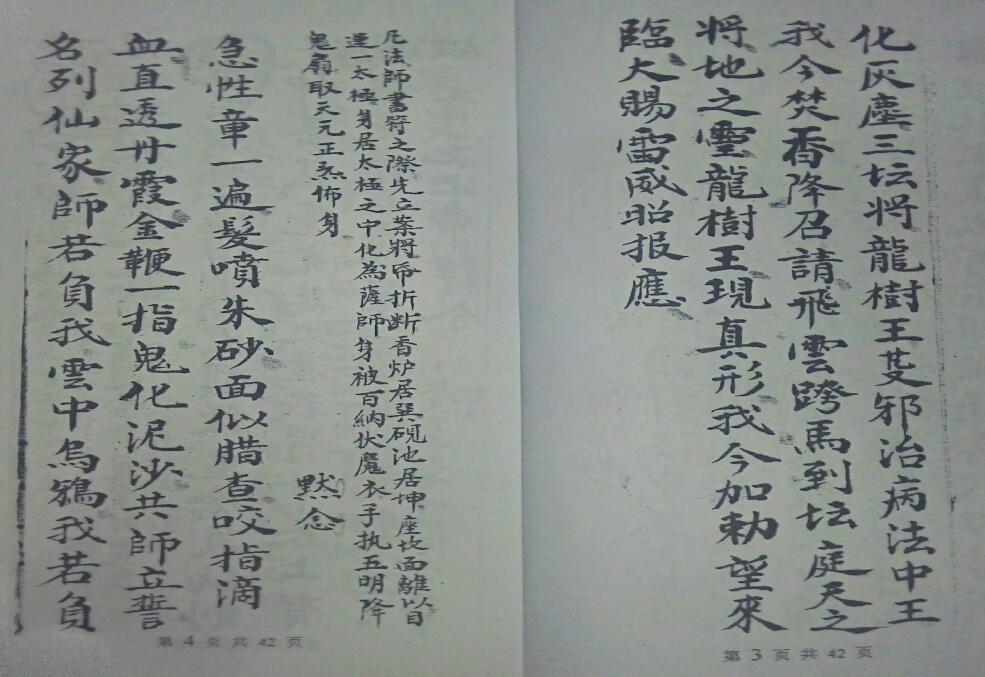 化灰塵三坛将龍樹王芟邪治病法中王
我今焚香降召請飛雲跨馬到坛庭天之
将地之靈龍樹王現真形我今加勅望來
臨大賜雷威昭报應
第 3 页 共 42 页
凡法師書符之際先立案將帋折断香炉居巽硯池居坤座坎面離以目
運一太極身居太極之中化為薩師身被百納伏魔衣手执五明降
鬼扇取天元正炁佈身
默念
急性章一遍髮噴朱砂面似腊查咬指滴
血直透丹霞金鞭一指鬼化泥沙共師立誓
名列仙家師若負我雲中烏鴉我若負
第 4 页 共 42 页